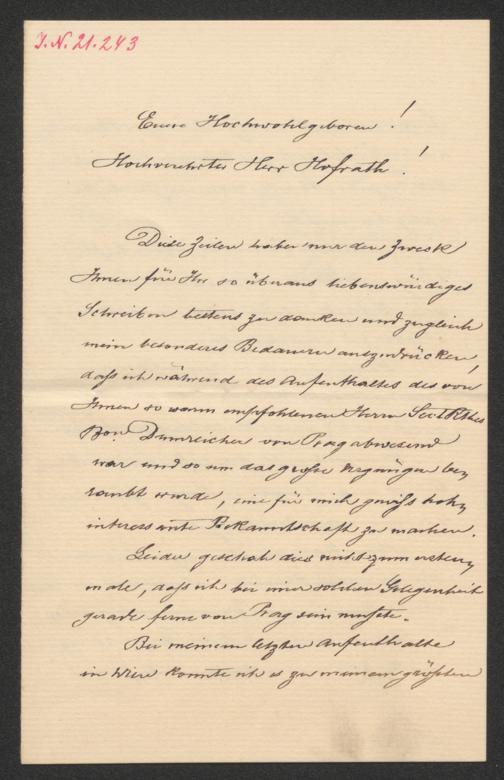 J.N. 21.243
Euer Hochwohlgeboren!
Hochverehrter Herr Hofrath!
Diese Zeilen haben nur den Zweck
Ihnen für Ihr so überaus liebenswürdiges
Schreiben bestens zu danken und zugleich
mein besonderes Bedauern auszudrücken,
daß ich während des Aufenthaltes des von
Ihnen so warm empfohlenen Herrn
Bon Dumreicher von Prag abwesend
war und so um das große Vergnügen be-
raubt wurde, eine für mich gewiß hoch-
interessante Bekanntschaft zu machen.
Leider geschah dies nicht zum ersten-
male, daß ich bei einer solchen Gelegenheit
gerade ferne von Prag sein mußte.
Bei meinem letzten Aufenthalte
in Wien konnte ich es zu meinem größten